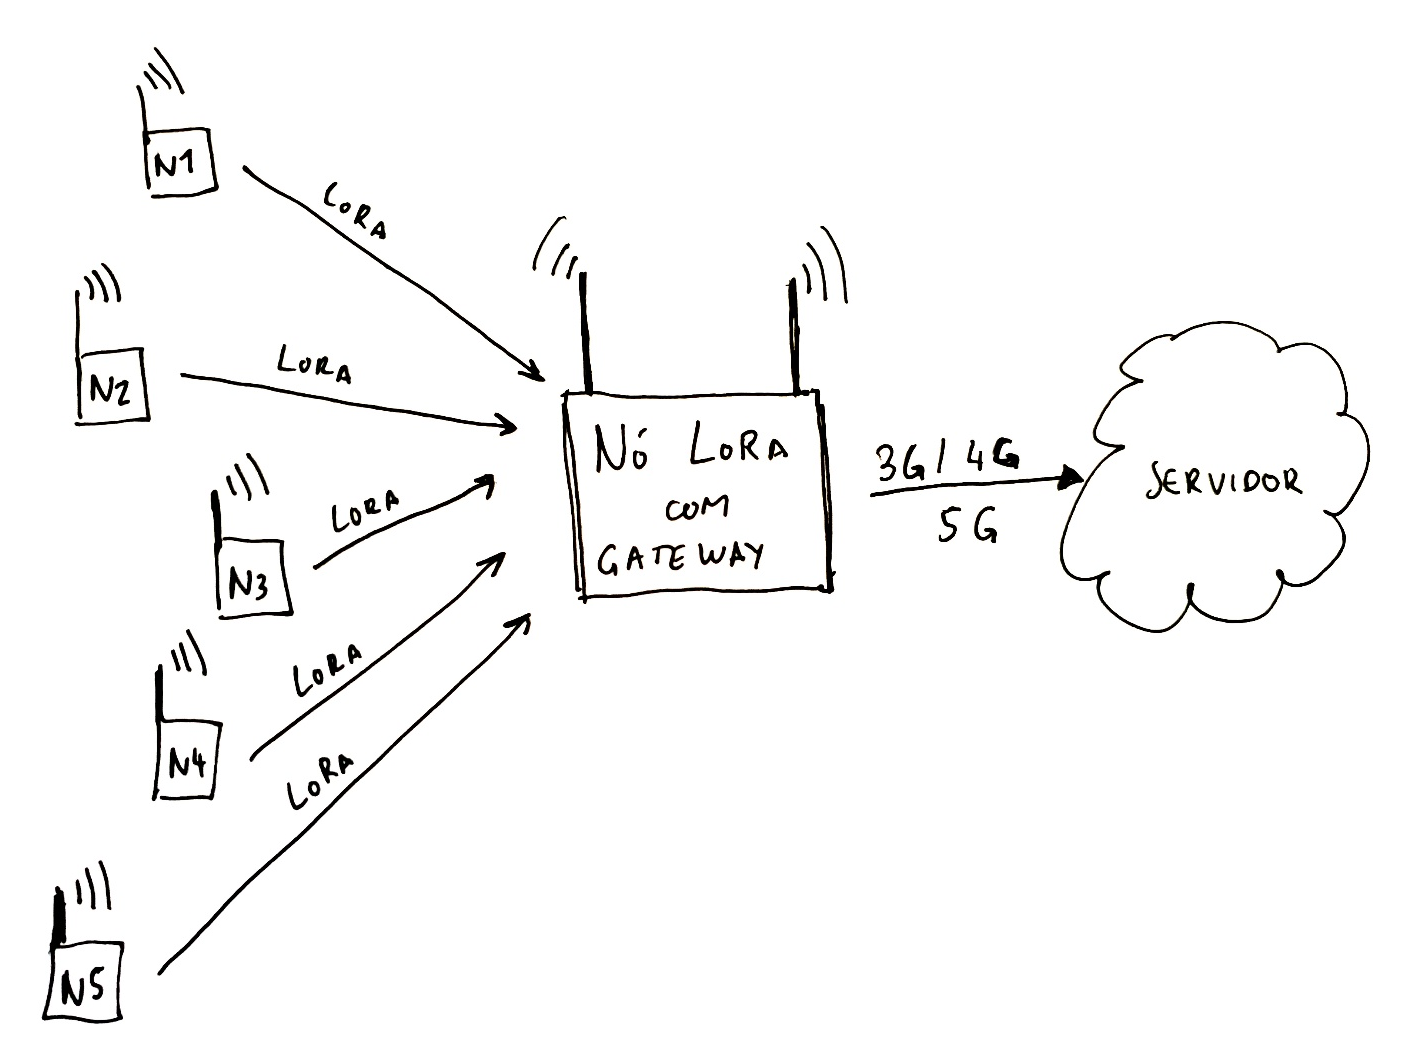 N1
LORA
N2
LORA
N3
LORA
N4
LORA
N5
LORA
NÓ LORA
COM
GATEWAY
3G/4G
5G
SERVIDOR